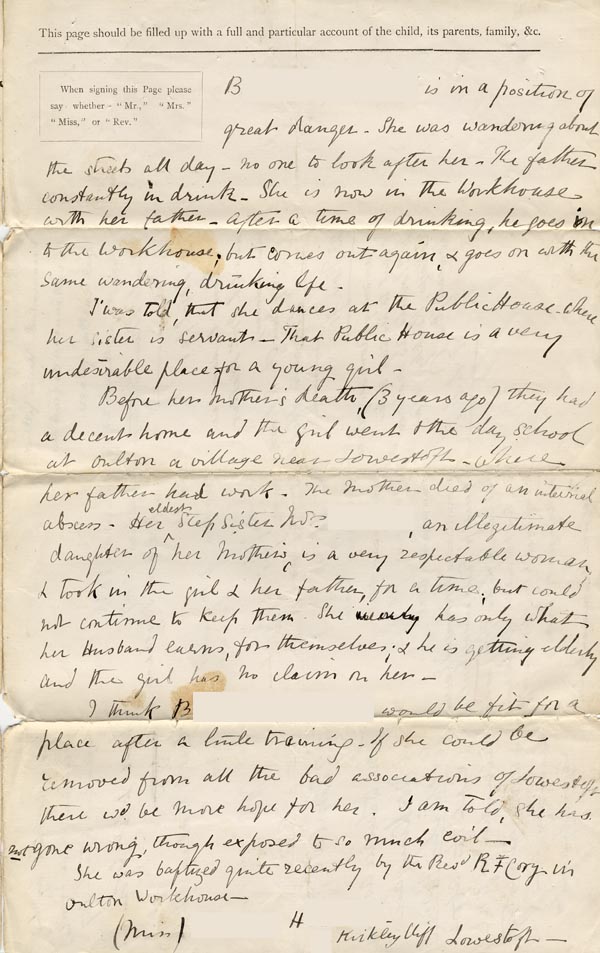 This page should be filled up with a full and particular account of the child, its parents, family, &c.
When signing this Page please
say whether - "Mr.," "Mrs."
"Miss," or "Rev."
B is in a position of
great danger - She was wandering about
the streets all day - no one to look after her - The father
constantly in drink - She is now in the Workhouse
with her father - After a time of drinking, he goes in
to the Workhouse, but comes out again, & goes on with the
same wandering, drinking life -
I was told, that she dances at the Public House - where
her sister is servant - That Public House is a very
undesirable place for a young girl -
Before her mother's death, (3 years ago) they had
a decent home and the girl went to the day school
at Oulton a village near Lowestoft - where
her father had work - The Mother died of an internal
abscess - Her eldest Step Sister Mrs , an illegitimate
daughter of her Mother's, is a very respectable woman,
& took in the girl & her father, for a time, but could
not continue to keep them. She has only what
her Husband earns, for themselves, & he is getting elderly
and the girl has no claim on her -
I think B would be fit for a
place after a little training - If she could be
removed from all the bad associations of Lowestoft
there wd be more hope for her. I am told, she has
not gone wrong, though exposed to so much evil -
She was baptized quite recently by the Revd R F Cory in
Oulton Workhouse -
(Miss) H Kirkley Cliff Lowestoft -